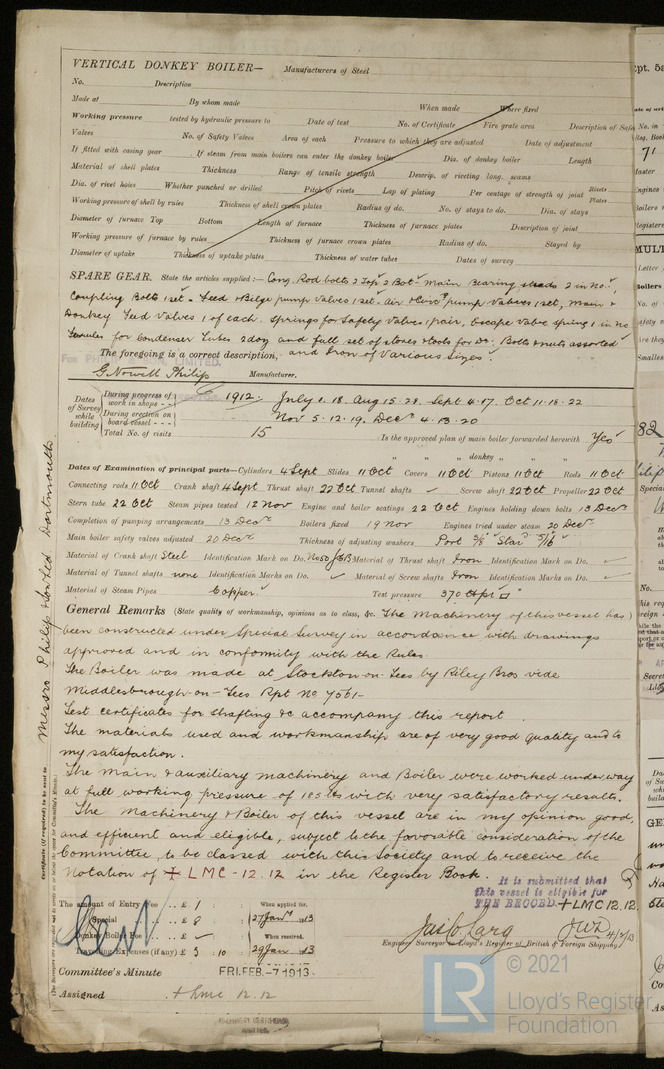 VERTICAL DONKEY BOILER— Manufacturers of Steel
No. Description
Made at By whom made When made Where fixed
Working pressure tested by hydraulic pressure to Date of test No. of Certificate Fire grate area Description of Safe
Valves No. of Safety Valves Area of each Pressure to which they are adjusted Date of adjustment
If fitted with casing gear If steam from main boilers can enter the donkey boiler Dia. of donkey boiler Length
Material of shell plates Thickness Range of tensile strength Descrip. of riveting long. seams
Dia. of rivet holes Whether punched or drilled Pitch of rivets Lap of plating Per centage of strength of joint Rivets Plates
Working pressure of shell by rules Thickness of shell crown plates Radius of do. No. of stays to do. Dia. of stays
Diameter of furnace Top Bottom Length of furnace Thickness of furnace plates Description of joint
Working pressure of furnace by rules Thickness of furnace crown plates Radius of do. Stayed by
Diameter of uptake Thickness of uptake plates Thickness of water tubes Dates of survey
SPARE GEAR. State the articles supplied:— Cong Rod bolts 2 Top 2 Bot Main Bearing studs 2 in No.
Coupling Bolts 1 set – Feed & Bilge pump valves 1 set – Air & Circ pump valves 1 set, Main &
Donkey Feed valves 1 of each. Springs for Safety Valves 1 pair, Escape valve spring 1 in No
Ferrules for Condenser Tubes 2 doz and full set of stores & tools for Do. Bolts & nuts assorted
The foregoing is a correct description, and Iron of Various Sizes.
G. Nowell Philip Manufacturer.
Dates of Survey while building
During progress of work in shops -- 1912. July 2. 18. Aug 15. 28. Sept 4. 17. Oct 11. 18. 22
During erection on board vessel --- Nov 5. 12. 19. Decr 4. 13. 20
Total No. of visits 15 Is the approved plan of main boiler forwarded herewith Yes
" " " donkey " " "
Dates of Examination of principal parts—Cylinders 4 Sept Slides 11 Oct Covers 11 Oct Pistons 11 Oct Rods 11 Oct
Connecting rods 11 Oct Crank shaft 4 Sept Thrust shaft 22 Oct Tunnel shafts Screw shaft 22 Oct Propeller 22 Oct
Stern tube 22 Oct Steam pipes tested 12 Nov Engine and boiler seatings 22 Oct Engines holding down bolts 13 Decr
Completion of pumping arrangements 13 Decr Boilers fixed 19 Nov Engines tried under steam 20 Decr
Main boiler safety valves adjusted 20 Decr Thickness of adjusting washers Port 3/8" Star 5/16"
Material of Crank shaft Steel Identification Mark on Do. Material of Thrust shaft Iron Identification Mark on Do.
Material of Tunnel shafts none Identification Marks on Do. Material of Screw shafts Iron Identification Marks on Do.
Material of Steam Pipes Copper Test pressure 370
General Remarks (State quality of workmanship, opinions as to class, &c. The Machinery of this vessel has
been constructed under Special Survey in accordance with drawings
approved and in conformity with the Rules.
The Boiler was made at Stockton-on-Tees by Riley Bros vide
Middlesborough-on-Tees Rpt No 7561–
Test certificates for shafting &c accompany this report.
The materials used and workmanship are of very good quality and to
my satisfaction.
The Main & auxiliary machinery and Boiler were worked underway
at full working pressure of 185 lbs with very satisfactory results.
The Machinery & Boiler of this vessel are in my opinion good,
and efficient and eligible, subject to the favorable consideration of the
Committee, to be classed with this Society and to receive the
Notation of + LMC-12.12 in the Register Book.
It is submitted that
this vessel is eligible for
THE RECORD. + LMC 12.12.
The amount of Entry Fee .. £ 1 When applied for,
Special .. £ 8 27 Jany 1913
Donkey Boiler Fee .. £ When received,
Travelling Expenses (if any) £ 3 . 10 29 Jan 1913
Engineer Surveyor to Lloyd's Register of British & Foreign Shipping.
Committee's Minute FRI. FEB.-7 1913
Assigned + LMC 12.12
Messrs Philip & Son Ltd Dartmouth
Certificate (if required) to be sent to
© 2021
Lloyd's Register
Foundation